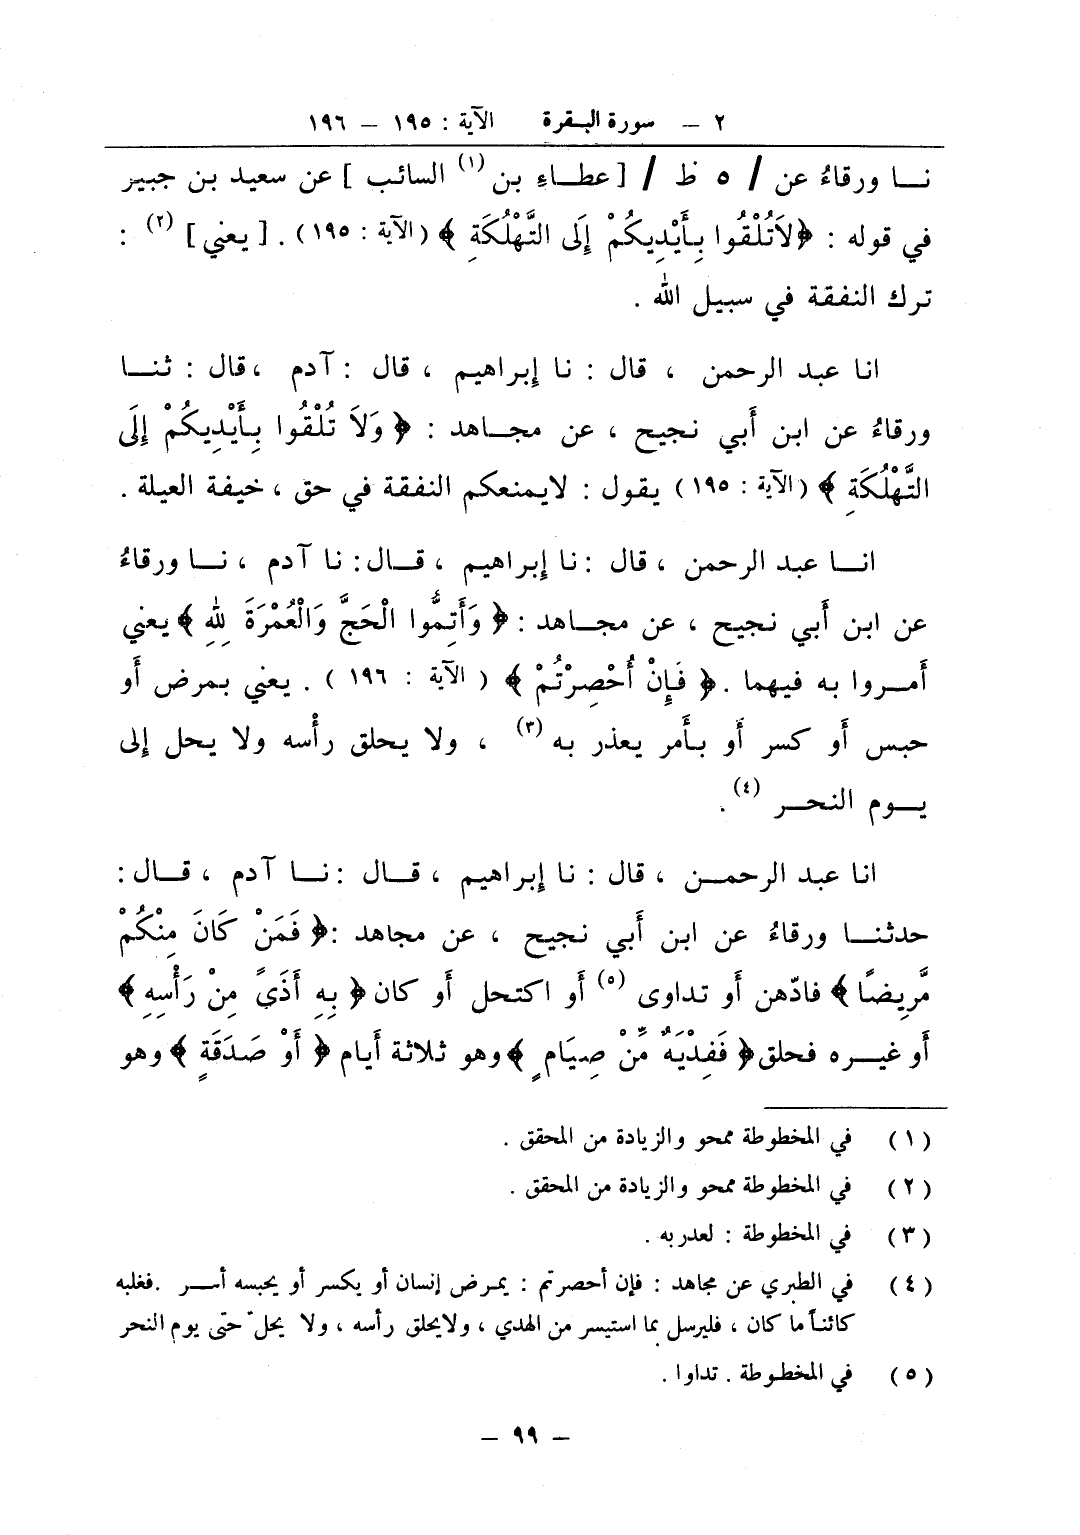 ٢ – سورة البقرة الآية : ١٩٥ – ١٩٦
نا ورقاءُ عن / ٥ ظ / [ عطاءِ بن (١) السائب ] عن سعيد بن جبير
في قوله : ﴿ لاَتُلْقُوا بِأَيْدِيكُمْ إِلَى التَّهْلُكَةِ ﴾ ( الآية : ١٩٥ ) . [ يعني ] (٢) :
ترك النفقة في سبيل الله .
انا عبد الرحمن ، قال : نا إبراهيم ، قال : آدم ، قال : ثنا
ورقاءُ عن ابن أَبي نجيح ، عن مجاهد : ﴿ وَلاَ تُلْقُوا بِأَيْدِيكُمْ إِلَى
التَّهْلُكَةِ ﴾ ( الآية : ١٩٥ ) يقول : لايمنعكم النفقة في حق ، خيفة العيلة .
انا عبد الرحمن ، قال : نا إبراهيم ، قال : نا آدم ، نا ورقاءُ
عن ابن أَبي نجيح ، عن مجاهد : ﴿ وَأَتِمُّوا الْحَجَّ وَالْعُمْرَةَ لِلهِ ﴾ يعني
أَمروا به فيهما . ﴿ فَإِنْ أُحْصِرْتُمْ ﴾ ( الآية : ١٩٦ ) . يعني بمرض أَو
حبس أَو كسر أَو بأَمر يعذر به (٣) ، ولا يحلق رأْسه ولا يحل إلى
يوم النحر (٤) .
انا عبد الرحمن ، قال : نا إبراهيم ، قال : نا آدم ، قال :
حدثنا ورقاءُ عن ابن أَبي نجيح ، عن مجاهد : ﴿ فَمَنْ كَانَ مِنْكُمْ
مَّرِيضًا ﴾ فادّهن أَو تداوى (٥) أَو اكتحل أَو كان ﴿ بِهِ أَذَىً مِنْ رَأْسِهِ ﴾
أَو غيره فحلق ﴿ فَفِدْيَةٌ مِّنْ صِيَامٍ ﴾ وهو ثلاثة أَيام ﴿ أَوْ صَدَقَةٍ ﴾ وهو
(١) في المخطوطة ممحو والزيادة من المحقق .
(٢) في المخطوطة ممحو والزيادة من المحقق .
(٣) في المخطوطة : لعدربه .
(٤) في الطبري عن مجاهد : فإن أحصرتم : يمرض إنسان أو يكسر أو يحبسه أمر . فغلبه
كائناً ما كان ، فليرسل بما استيسر من الهدي ، ولايحلق رأسه ، ولا يحلّ حتى يوم النحر
(٥) في المخطوطة . تداوا .
– ٩٩ –